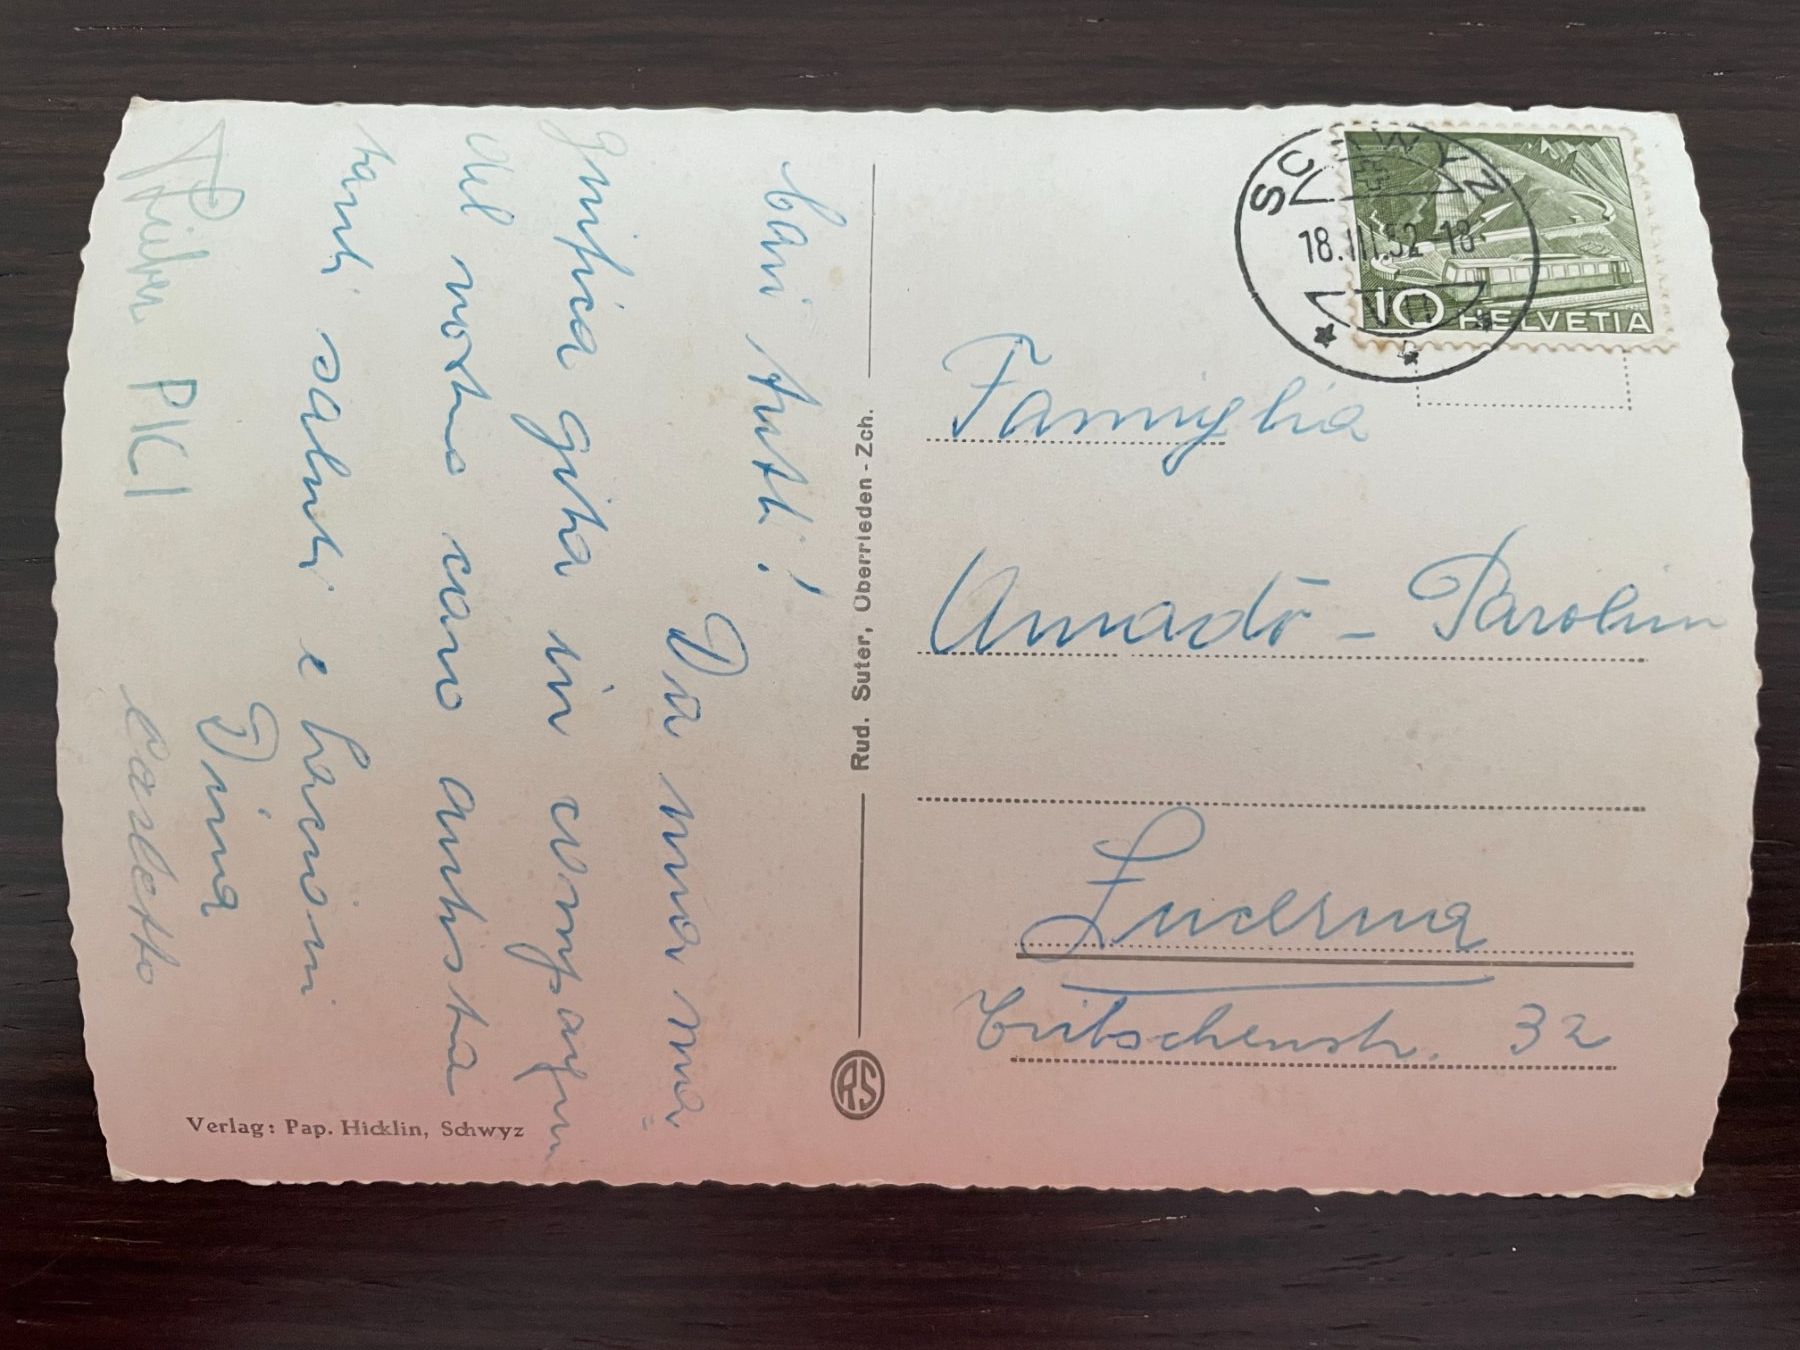 Cari tutti!
Da una ma=
gnifica gita in compagnia
del nostro caro autista
tanti saluti e bacioni
Dina
PICI
Carletto
Verlag: Pap. Hicklin, Schwyz
Rud. Suter, Oberrieden - Zch.
RS
SCHWYZ
18.III.52-18
10 HELVETIA
Famiglia
Amadò - Parolini
Lucerna
Bribschenstr. 32